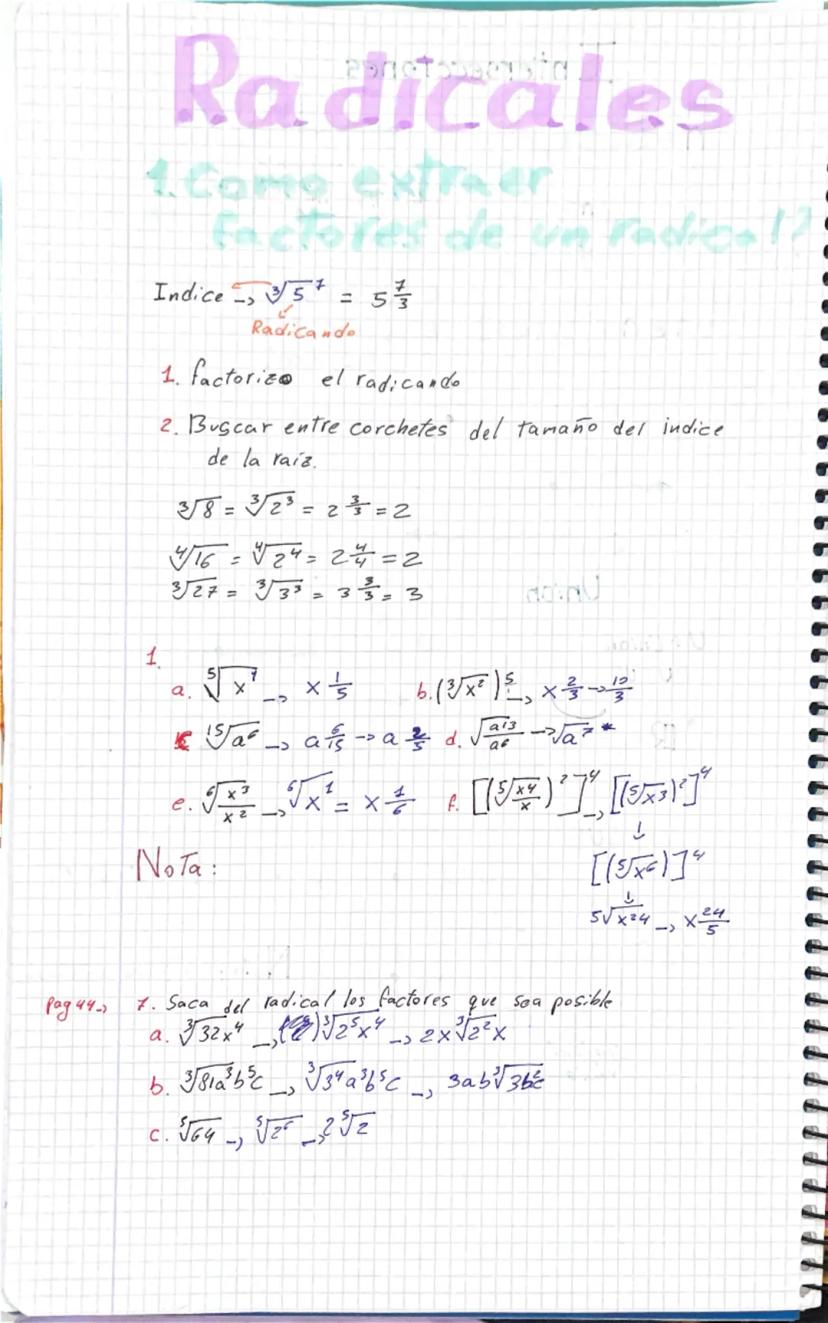 Radicales
1. Como extraer
factores de un radical?
Indice → ∛5⁷ = 5^(7/3)
Radicando
1. factorizo el radicando
2. Buscar entre corchetes del tamaño del indice
de la raíz.
∛8 = ∛2³ = 2^(3/3) = 2
∜16 = ∜2⁴ = 2^(4/4) = 2
∛27 = ∛3³ = 3^(3/3) = 3
1.
a. ⁵√x⁷ → x^(1/5) b. (∛x²)⁵ → x^(2/3) → ^(10/3)
¹⁵√a⁶ → a^(6/15) → a^(2/5) d. √(a¹³/a⁶) → √a⁷ *
e. ⁶√(x³/x²) → ⁶√x¹ = x^(1/6) f. [(⁵√(x⁴/x))²]⁴ → [(⁵√x³)²]⁴
↓
Nota: [(⁵√x⁶)]⁴
↓
5√x²⁴ → x^(24/5)
Pag 44 → 7. Saca del radical los factores que sea posible
a. ∛32x⁴ → ∛2⁵x⁴ → 2x∛2²x
b. ∛81a³b⁵c → ∛3⁴a³b⁵c → 3ab∛3b²c
c. ⁵√64 → ⁵√2⁶ → 2⁵√2